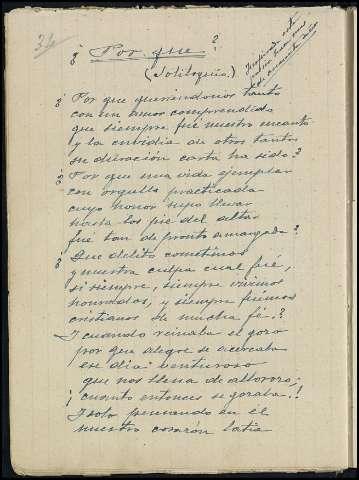 34
¿Por que?
(Soliloquio.)
¿Por que queriendonos tanto
con un amor comprendido
que siempre fué nuestro encanto
y la envidia de otros tantos
su duración corta ha sido?
¿Por que una vida ejemplar
con orgullo practicada
cuyo honor supo llevar
hasta los pie del altar
fué tan de pronto amargada?
¿Que delito cometimos
y nuestra culpa cual fué,
si siempre, siempre vivimos
honrados, y siempre fuimos
cristianos de mucha fé.?
Y cuando reinaba el gozo
por que alegre se acercaba
ese dia venturoso
que nos llena de alborozo;
¡cuanto entonces se gozaba.!
Y solo pensando en él
nuestro corazón latia